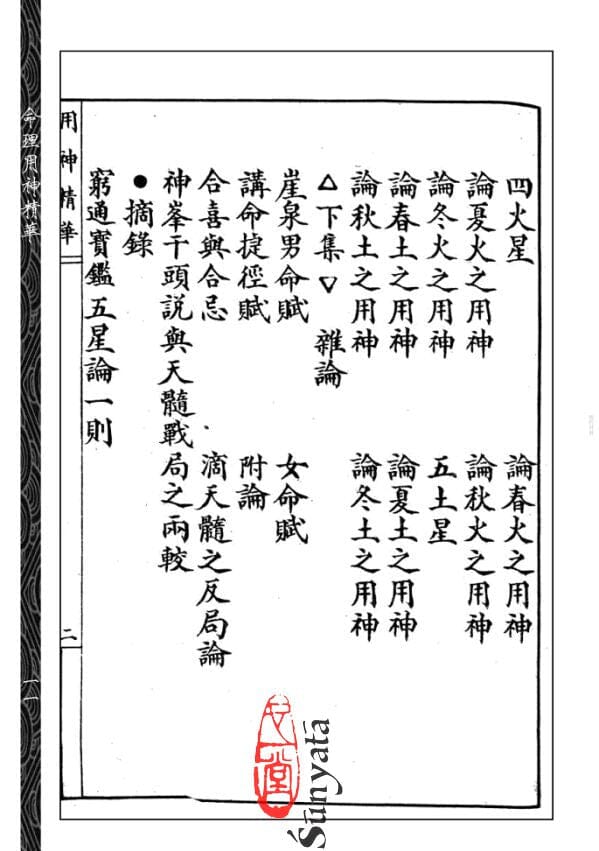 四火星　論春火之用神
論夏火之用神　論秋火之用神
論冬火之用神　五土星
論春土之用神　論夏土之用神
論秋土之用神　論冬土之用神
△下集▽　雜論
崖泉男命賦　女命賦
講命捷徑賦　附論
合喜與合忌　滴天髓之反局論
神峯干頭說與天髓戰局之兩較
●摘錄
窮通寶鑑五星論一則
用神精華
二
命理用神精華
一一
Śūnyatā